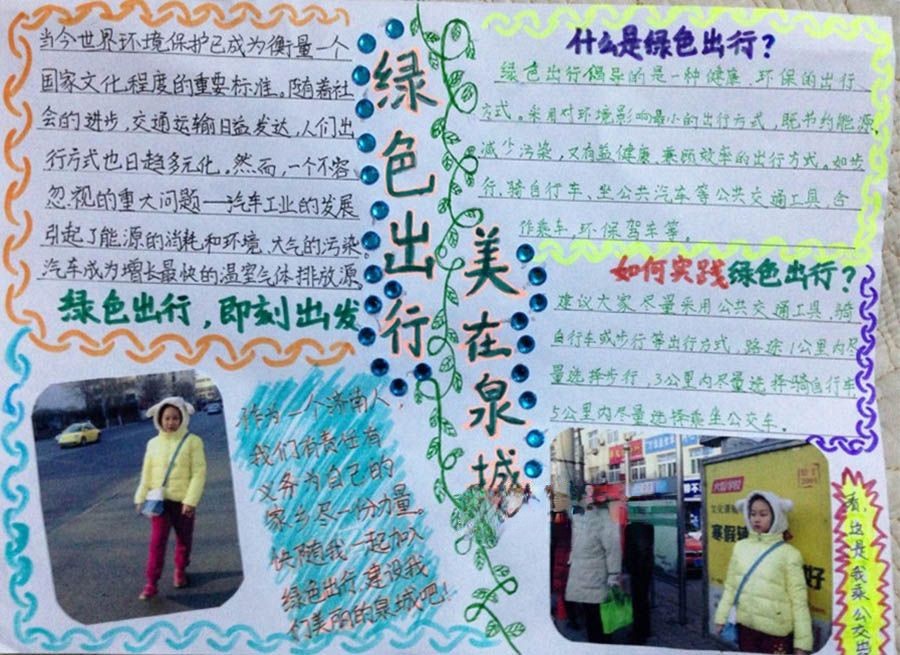 当今世界环境保护已成为衡量一个
国家文化程度的重要标准。随着社
会的进步，交通运输日益发达，人们出
行方式也日趋多元化，然而，一个不容
忽视的重大问题—汽车工业的发展
引起了能源的消耗和环境、大气的污染
汽车成为增长最快的温室气体排放源
绿色出行，即刻出发
绿色出行
美在泉城
什么是绿色出行？
绿色出行倡导的是一种健康、环保的出行
方式。采用对环境影响最小的出行方式，既节约能源、
减少污染，又有益健康、兼顾效率的出行方式。如步
行、骑自行车、坐公共汽车等公共交通工具，合
作乘车、环保驾车等。
如何实践绿色出行？
建议大家尽量采用公共交通工具、骑
自行车或步行等出行方式，路途1公里内尽
量选择步行，3公里内尽量选择骑自行车，
5公里内尽量选择乘坐公交车。
作为一个济南人，
我们有责任有
义务为自己的
家乡尽一份力量。
快随我一起加入
绿色出行，建设我
们美丽的泉城吧！
寒假
好
看，这是我乘公交出